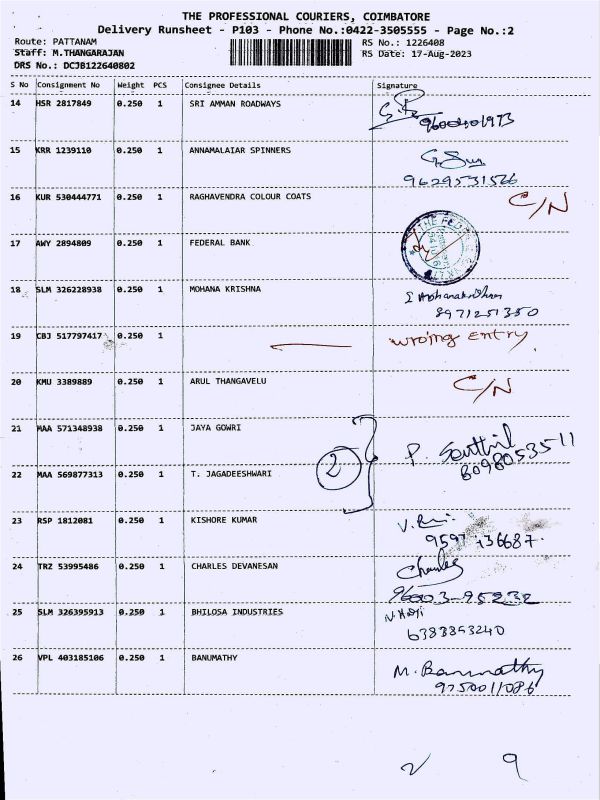 THE PROFESSIONAL COURIERS, COIMBATORE
Delivery Runsheet - P103 - Phone No.:0422-3505555 - Page No.:2
Route: PATTANAM
RS No.: 1226408
Staff: M.THANGARAJAN
RS Date: 17-Aug-2023
DRS No.: DCJB122640802
S No Consignment No Weight PCS Consignee Details Signature
14 HSR 2817849 0.250 1 SRI AMMAN ROADWAYS
15 KRR 1239110 0.250 1 ANNAMALAIAR SPINNERS
9629531566
16 KUR 530444771 0.250 1 RAGHAVENDRA COLOUR COATS C/N
17 AWY 2894809 0.250 1 FEDERAL BANK
18 SLM 326228938 0.250 1 MOHANA KRISHNA
8971251350
19 CBJ 517797417 0.250 1 wrong entry
20 KMU 3389889 0.250 1 ARUL THANGAVELU C/N
21 MAA 571348938 0.250 1 JAYA GOWRI
2 P. Senthil
8098053511
22 MAA 569877313 0.250 1 T. JAGADEESHWARI
23 RSP 1812081 0.250 1 KISHORE KUMAR
24 TRZ 53995486 0.250 1 CHARLES DEVANESAN Charles
96003-95232
25 SLM 326395913 0.250 1 BHILOSA INDUSTRIES
6383853240
26 VPL 403185106 0.250 1 BANUMATHY M. Banumathy
9750011086
9